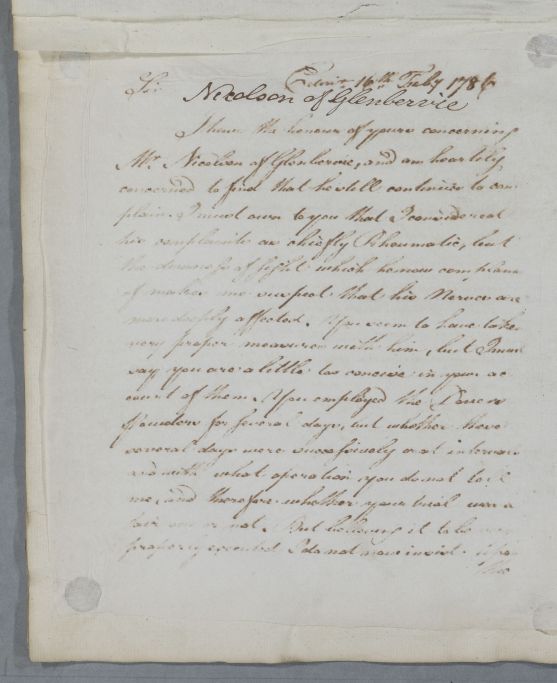 Sir
Edinr 16th Feby 1786
Nicolson of Glenbervie
I have the honour of yours concerning
Mr Nicolson of Glenbervie, and am heartily
concerned to find that he still continues to com
plain. I must own to you that I considered
his complaints as chiefly Rheumatic, but
the dimness of sight which he now complains
of makes me suspect that his Nerves are
more deeply affected. You seem to have taken
very proper measures with him, but I must
say you are a little too concise in your ac
count of them. You employed the Dover
Powders for several days, but whether these
several days were successively or at intervals
and with what operation you do not tell
me, and therefore whether your trial was a
fair one or not. But believing it to be very
properly executed I do not now insist upon